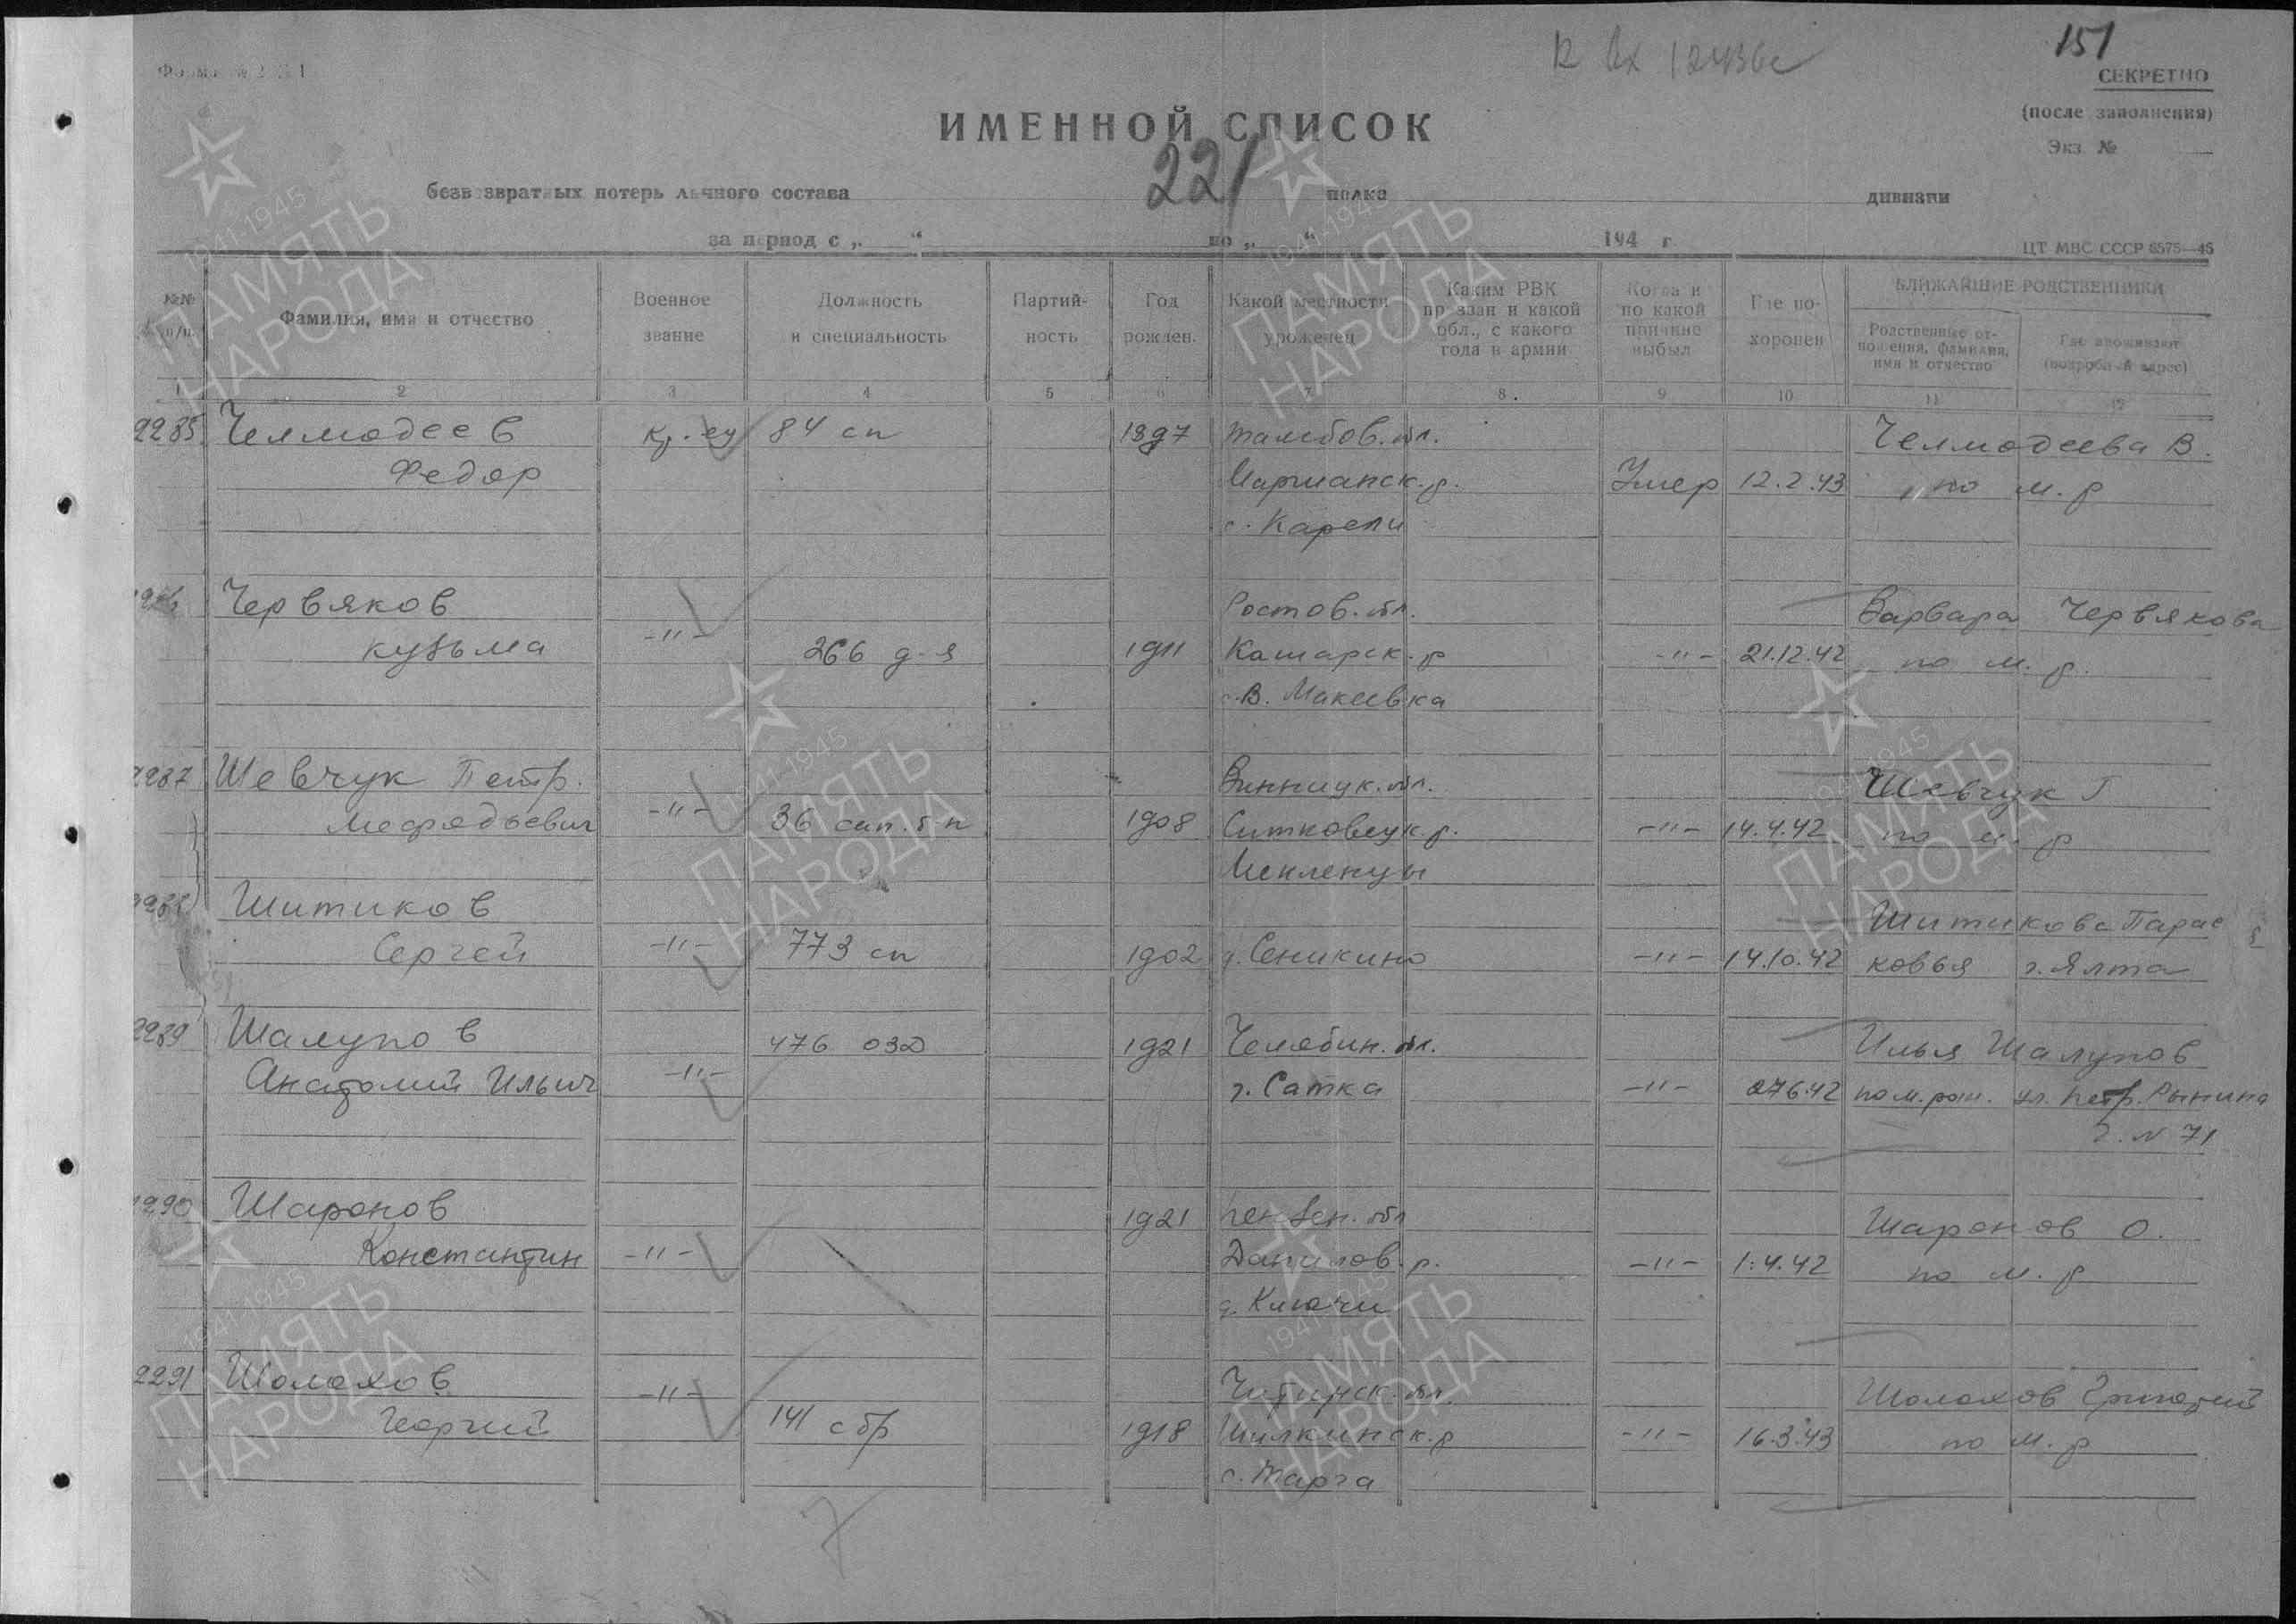 151
К Вх 12436с
СЕКРЕТНО
(после заполнения)
Экз. №
ИМЕННОЙ СПИСОК
безвозвратных потерь личного состава 221 полка дивизии
за период с „ “ по „ “ 194 г.
ЦТ МВС СССР 6575—45
№№ п/п.
Фамилия, имя и отчество
Военное звание
Должность и специальность
Партийность
Год рожден.
Какой местности уроженец
Каким РВК призван и какой обл., с какого года в армии
Когда и по какой причине выбыл
Где похоронен
БЛИЖАЙШИЕ РОДСТВЕННИКИ
Родственные отношения, фамилия, имя и отчество
Где проживают (подробный адрес)
1 2 3 4 5 6 7 8. 9 10 11 12
2285 Челмодеев кр-ец 84 сп 1897 Тамбов. обл. Челмодеева В.
Федор Моршанск. р. Умер 12.2.43 по м. р
с. Карели
Червяков Ростов. обл. Варвара Червякова
Кузьма -"- 266 д-я 1911 Кашарск. р -"- 21.12.42 по м. р.
с. В. Макеевка
2287 Шевчук Петр. Винницк. обл. Шевчук Г
Мефодьевич -"- 36 сап. б-н 1908 Ситковецк. р. -"- 14.4.42 по м. р
Шитиков Шитикова Парас
Сергей -"- 773 сп 1902 д. Сеникино -"- 14.10.42 ковья г. Ялта
2289 Шалупов 476 ОЗД 1921 Челябин. обл. Илья Шалупов
Анатолий Ильич -"- г. Сатка -"- 27.6.42 по м. рож. ул. Петр. Рынина
д. N 71
2290 Шаронов 1921 Пензен. обл Шаронов О.
Константин -"- Данилов. р. -"- 1.4.42 по м. р
д. Ключи
2291 Шолохов -"- Читинск. обл. Шолохов Григорий
Георгий 141 сбр 1918 Шилкинск. р -"- 16.3.43 по м. р
с. Тарга
1941-1945
ПАМЯТЬ
НАРОДА